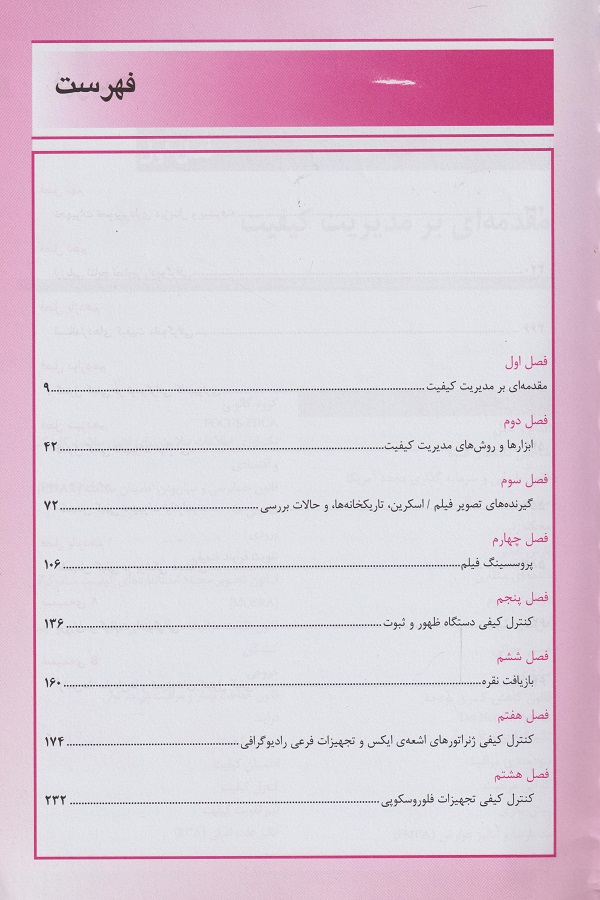 فهرست
فصل اول
مقدمه‌ای بر مدیریت کیفیت ۹
فصل دوم
ابزارها و روش‌های مدیریت کیفیت ۴۲
فصل سوم
گیرنده‌های تصویر فیلم / اسکرین، تاریکخانه‌ها، و حالات بررسی ۷۲
فصل چهارم
پروسسینگ فیلم ۱۰۶
فصل پنجم
کنترل کیفی دستگاه ظهور و ثبوت ۱۳۶
فصل ششم
بازیافت نقره ۱۶۰
فصل هفتم
کنترل کیفی ژنراتورهای اشعه‌ی ایکس و تجهیزات فرعی رادیوگرافی ۱۷۴
فصل هشتم
کنترل کیفی تجهیزات فلوروسکوپی ۲۳۲